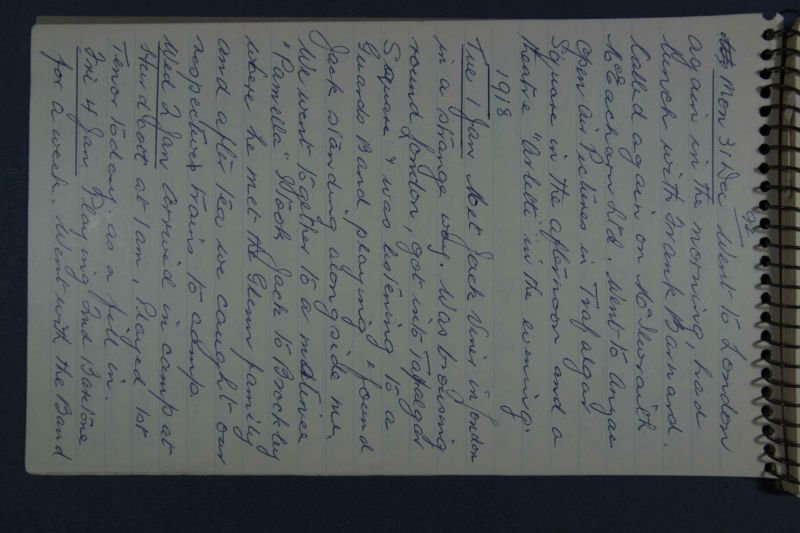 Mon 31 Dec Went to London
92
again in the morning, had
lunch with Frank Barnard.
Called again on McIlwraith
McEacharn Ltd. Went to Anzac
Open Air Pictures in Trafalgar
Square in the afternoon and a
theatre "Arlette" in the evening.
1918
Tue 1 Jan Met Jack Viner in London
in a strange way. Was browsing
round London, got into Trafalgar
Square & was listening to a
Guards Band playing & found
Jack standing alongside me.
We went together to a matinee
"Pamella" I took Jack to Brockley
where he met the Glenn family
and after tea we caught our
respective trains to camp.
Wed 2 Jan Arrived in camp at
Hurdcott at 1 am, Played 1st
Tenor today as a fill in.
Fri 4 Jan Playing 2nd Baritone
for a week. Went with the Band